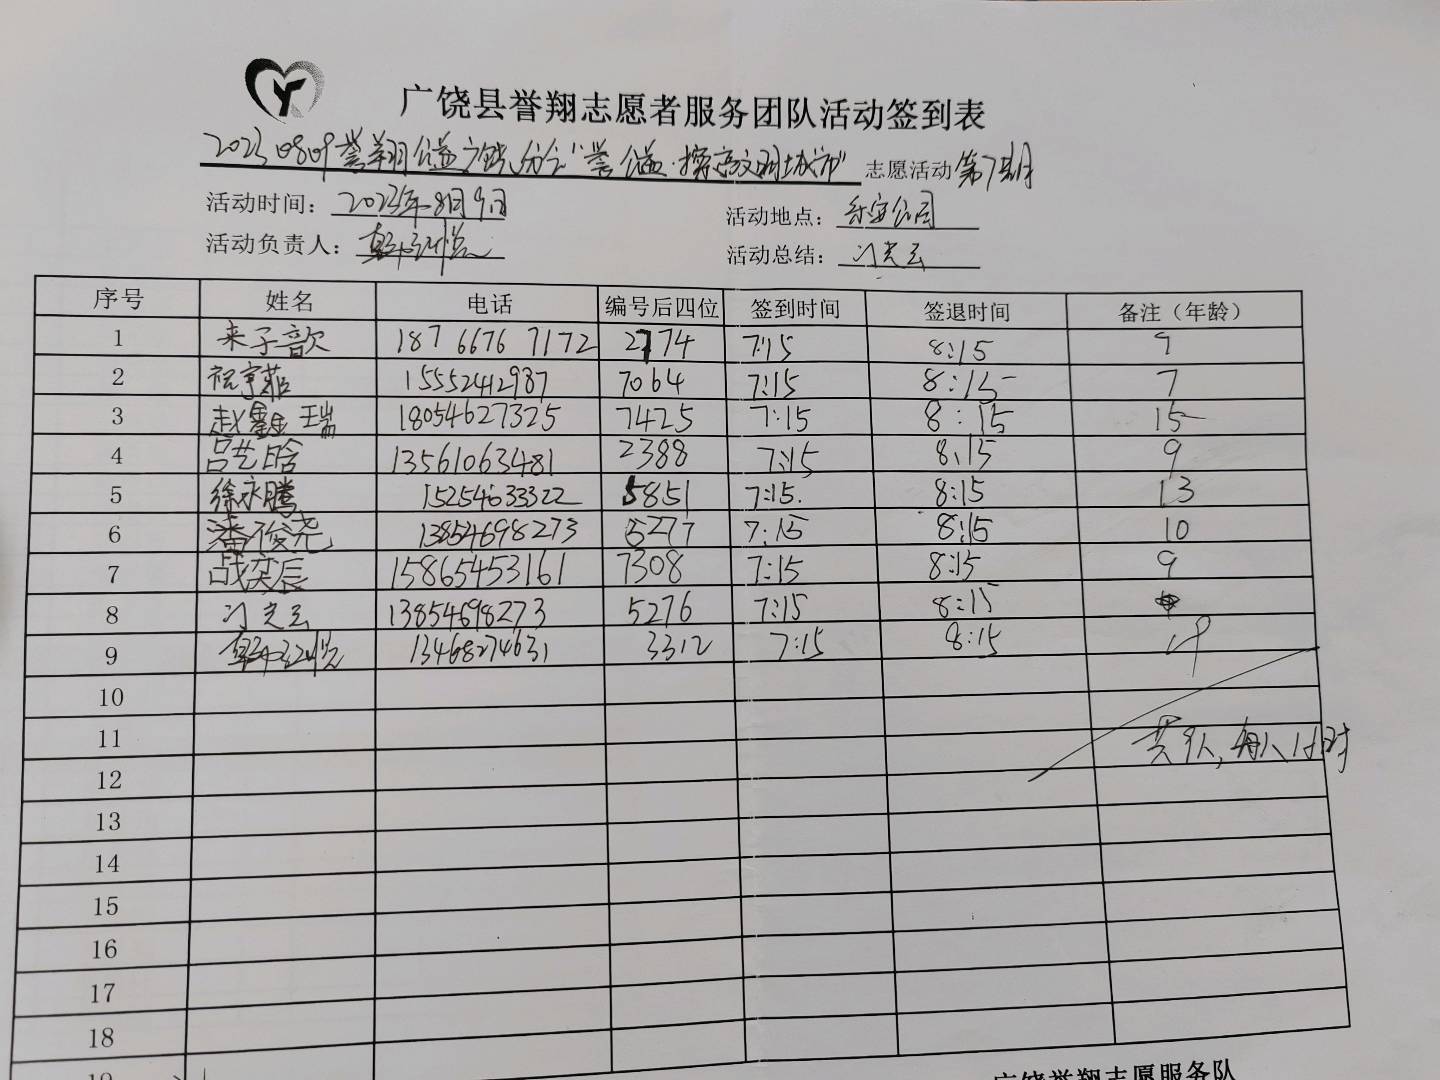 广饶县誉翔志愿者服务团队活动签到表
20230809誉翔公益广饶分会"誉公益·擦亮文明城市" 志愿活动 第7期
活动时间：2023年8月9日 活动地点：乐安公园
活动负责人： 活动总结：冯光云
序号 姓名 电话 编号后四位 签到时间 签退时间 备注（年龄）
1 来子歆 187 6676 7172 2774 7:15 8:15 9
2 祝 15552412987 7064 7:15 8:15 7
3 赵鑫瑞 18054627325 7425 7:15 8:15 15
4 吕艺晗 13561063481 2388 7:15 8:15 9
5 徐永腾 15254633322 5851 7:15. 8:15 13
6 潘俊尧 13854698273 5277 7:15 8:15 10
7 战奕辰 15865453161 7308 7:15 8:15 9
8 冯光云 13854698273 5276 7:15 8:15
9 13468274631 3312 7:15 8:15 19
10
11
共9人，每人1小时
12
13
14
15
16
17
18
19
广饶誉翔志愿服务队